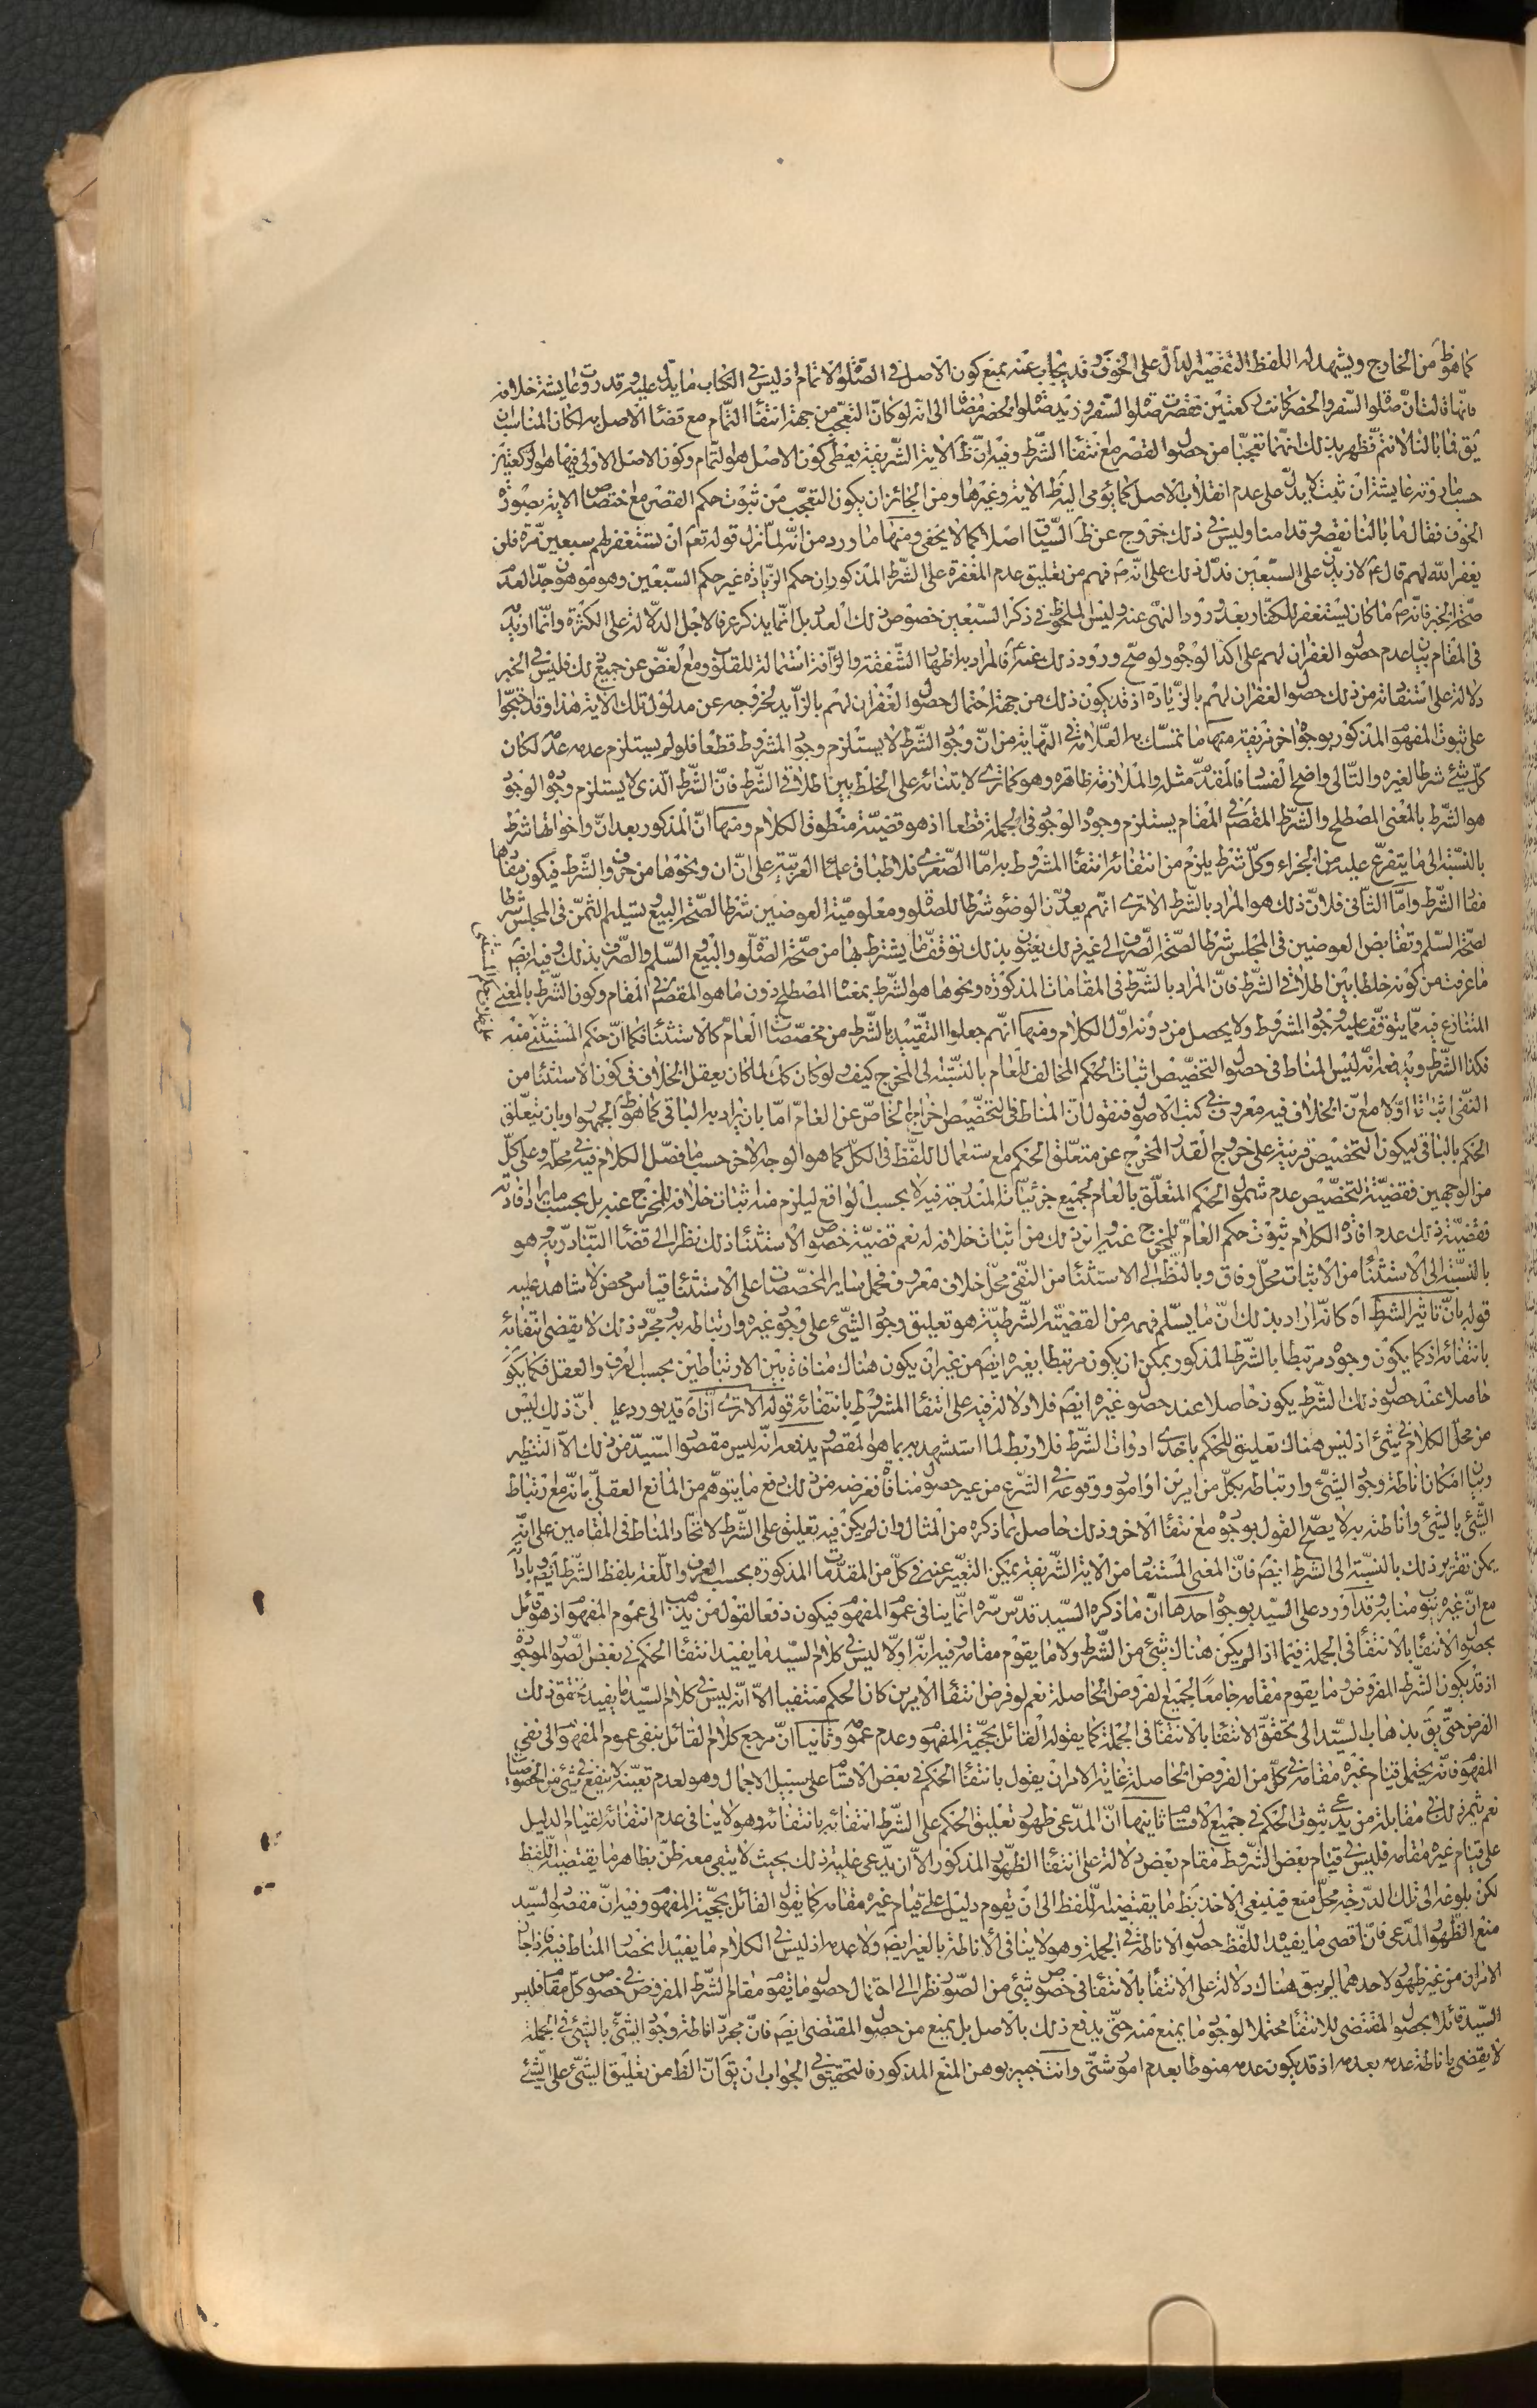 كما هو ظ من الخارج ويشهد له اللفظ التقصير الدال على الخوف وقد يجاب عنه بمنع كون الاصل في الصلوة الاتمام اذ ليس في الكتاب ما يدل عليه وقد روت عايشة خلافه
فانها قالت ان صلوة السفر والحضر كانت ركعتين فقصرت صلوة السفر وزيد صلوة الحضر مضافا الى انه لو كان التعجب من جهة انتفاء التمام مع قضاء الاصل به لكان المناسب ان
يق فما بالنا لا نتم فظهر بذلك انهما تعجبا من حصول القصر مع انتفاء الشرط وفيه ان ظ الاية الشريفة يعطي كون الاصل هو التمام وكون الاصل الاولى فيها هو الركعتين
حسب ما روته عايشة ان ثبت لا يدل على عدم انقلاب الاصل كما يؤمي اليه ظ الاية وغيرها ومن الجائز ان يكون التعجب من ثبوت حكم القصر مع اختصاص الاية بصورة
الخوف فقال ما بالنا نقصر وقد امنا وليس في ذلك خروج عن ظ السياق اصلا كما لا يخفى ومنها ما ورد من انه لما نزل قوله تعم ان تستغفر لهم سبعين مرة فلن
يغفر الله لهم قال ص لازيدن على السبعين فدل ذلك على انه ص فهم من تعليق عدم المغفرة على الشرط المذكور ان حكم الزيادة غير حكم السبعين وهو موهون جدا لعدم
صحة الخبر فانه ص ما كان يستغفر للكفار بعد ورود النهي عنه وليس الملحوظ في ذكر السبعين خصوص ذلك العدد بل انما يذكر عرفا لاجل الدلالة على الكثرة وانما اريد
في المقام بيان عدم حصول الغفران لهم على اكد الوجوه ولو صح ورود ذلك عنه ص فالمراد به اظهار الشفقة والرأفة استمالة للقلوب ومع الغض عن جميع ذلك فليس في الخبر
دلالة على استفادته من ذلك حصول الغفران لهم بالزيادة اذ قد يكون ذلك من جهة احتمال حصول الغفران لهم بالزايد لخروجه عن مدلول تلك الاية هذا وقد احتجوا
على ثبوت المفهوم المذكور بوجوه اخر مزيفة منها ما تمسك به العلامة في النهاية من ان وجود الشرط لا يستلزم وجود المشروط قطعا فلو لم يستلزم عدمه عدمه لكان
كل شئ شرطا لغيره والتالي واضح الفساد فالمقدم مثله والملازمة ظاهرة وهو كما ترى لابتنائه على الخلط بين اطلاقي الشرط فان الشرط الذي لا يستلزم وجوده الوجود
هو الشرط بالمعنى المصطلح والشرط المقصود في المقام يستلزم وجوده الوجود في الجملة قطعا اذ هو قضية منطوق الكلام ومنها ان المذكور بعد ان واخواتها شرط
بالنسبة الى ما يتفرع عليه من الجزاء وكل شرط يلزم من انتفائه انتفاء المشروط به اما الصغرى فلاطباق علماء العربية على ان ان ونحوها من حروف الشرط فيكون مفادها
مفاد الشرط واما الثاني فلان ذلك هو المراد بالشرط الا ترى انهم يعدون الوضوء شرطا للصلوة ومعلومية العوضين شرطا لصحة البيع وتسليم الثمن في المجلس شرطا
لصحة السلم وتقابض العوضين في المجلس شرطا لصحة الصرف الى غير ذلك يعنون بذلك توقف ما يشترط بها من صحة الصلوة والبيع والسلم والصرف بذلك وفيه ايضا
ما عرفت من كونه خلطا بين اطلاقي الشرط فان المراد بالشرط في المقامات المذكورة ونحوها هو الشرط بمعناه المصطلح دون ما هو المقصود في المقام وكون الشرط بالمعنى
المتنازع فيه مما يتوقف عليه وجود المشروط ولا يحصل من دونه اول الكلام ومنها انهم جعلوا التقييد بالشرط من مخصصات العام كالاستثناء فكما ان حكم المستثنى منه
فكذا الشرط ويدفعه انه ليس المناط في حصول التخصيص اثبات الحكم المخالف للعام بالنسبة الى المخرج كيف ولو كان كك لما كان يعقل الخلاف في كون الاستثناء من
النفي اثباتا او لا مع ان الخلاف فيه معروف في كتب الاصول فنقول ان المناط في التخصيص اخراج الخاص عن العام اما بان يراد به الباقي كما هو ظ الجمهور او بان يتعلق
الحكم بالباقي ليكون التخصيص قرينة على خروج القدر المخرج عن متعلق الحكم مع استعمال اللفظ في الكل كما هو الوجه الاخر حسب ما فصل الكلام فيه في محله وعلى كل
من الوجهين فقضية التخصيص عدم شمول الحكم المتعلق بالعام لجميع جزئيات المندرجة فيه لا بحسب الواقع ليلزم منه اثبات خلافه للمخرج عنه بل بحسب ما يراد افادته
فقضية ذلك عدم افادة الكلام ثبوت حكم العام للمخرج عنه واين ذلك من اثبات خلافه له نعم قضية خصوص الاستثناء ذلك نظرا الى قضاء التبادر به وهو
بالنسبة الى الاستثناء من الاثبات محل وفاق وبالنظر الى الاستثناء من النفي محل خلاف معروف فحمل ساير المخصصات على الاستثناء قياس محض لا شاهد عليه
قوله بان تاثير الشرط اه كانه اراد بذلك ان ما يسلم فهمه من القضية الشرطية هو تعليق وجود الشئ على وجود غيره وارتباطه به ومجرد ذلك لا يقضي انتفائه
بانتفائه اذ كما يكون وجوده مرتبطا بالشرط المذكور يمكن ان يكون مرتبطا بغيره ايضا من غير ان يكون هناك منافاة بين الارتباطين بحسب العرف والعقل فكما يكون
حاصلا عند حصول ذلك الشرط يكون حاصلا عند حصول غيره ايضا فلا دلالة فيه على انتفاء المشروط بانتفائه قوله الا ترى ان اه قد يورد عليه ان ذلك ليس
من محل الكلام في شئ اذ ليس هناك تعليق للحكم باحدى ادوات الشرط فلا ربط لما استشهد به بما هو المقصود يدفعه انه ليس مقصود السيد من ذلك الا التنظير
وبيان امكان اناطة وجود الشئ وارتباطه بكل من امرين او امور ووقوعه في الشرع من غير حصول منافاة فغرضه من ذلك دفع ما يتوهم من المانع العقلي بانه مع ارتباط
الشئ بالشئ واناطته به لا يصح القول بوجوده مع انتفاء الاخر وذلك حاصل بما ذكره من المثال وان لم يكن فيه تعليق على الشرط لاتحاد المناط في المقامين على انه
يمكن تقرير ذلك بالنسبة الى الشرط ايضا فان المعنى المستفاد من الاية الشريفة يمكن التعبير عنه في كل من المقدمات المذكورة بحسب العرف واللغة بلفظ الشرط ايضا
مع ان غيره ينوب منابه وقد اورد على السيد بوجوه احدها ان ما ذكره السيد قدس سره انما ينافي عموم المفهوم فيكون دفعا لقول من يذهب الى عموم المفهوم اذ هو قائل
بحصول الانتفاء بالانتفاء في الجملة فيما اذا لم يكن هناك شئ من الشرط ولا ما يقوم مقامه وفيه انه اولا ليس في كلام السيد ما يفيد انتفاء الحكم في بعض الصور الموجودة
اذ قد يكون الشرط المفروض وما يقوم مقامه جامعا لجميع الفروض الحاصلة نعم لو فرض انتفاء الامرين كان الحكم منتفيا الا انه ليس في كلام السيد ما يفيد تحقق ذلك
الفرض حتى يق بذهاب السيد الى تحقق الانتفاء بالانتفاء في الجملة كما يقوله القائل بحجية المفهوم وعدم عمومه وثانيا ان مرجع كلام القائل بنفي عموم المفهوم الى نفي
المفهوم فانه يحتمل قيام غيره مقامه في كل من الفروض الحاصلة غاية الامر ان يقول بانتفاء الحكم في بعض الاقسام على سبيل الاجمال وهو لعدم تعينه لا ينفع في شئ من الخصوصيات
نعم يثمر ذلك في مقابلة من يدعي ثبوت الحكم في جميع الاقسام ثانيها ان المدعى ظهور تعليق الحكم على الشرط انتفائه بانتفائه وهو لا ينافي عدم انتفائه لقيام الدليل
على قيام غيره مقامه فليس في قيام بعض الشروط مقام بعض دلالة على انتفاء الظهور المذكور الا ان يدعي غلبة ذلك بحيث لا يبقى معه ظن بظاهر ما يقتضيه اللفظ
لكن بلوغه الى تلك الدرجة محل منع فينبغي الاخذ بظ ما يقتضيه اللفظ الى ان يقوم دليل على قيام غيره مقامه كما يقول القائل بحجية المفهوم وفيه ان مقصود السيد
منع الظهور المدعى فان اقصى ما يفيده اللفظ حصول الاناطة في الجملة وهو لا ينافي الاناطة بالغير ايضا ولا عدمه اذ ليس في الكلام ما يفيد انحصار المناط فيه فاذا جاز
الامران من غير ظهور لاحدهما لم يبق هناك دلالة على الانتفاء بالانتفاء في خصوص شئ من الصور نظرا الى احتمال حصول ما يقوم مقام الشرط المفروض في خصوص كل مقام فليس
السيد قائلا بحصول المقتضى للانتفاء محتملا لوجود ما يمنع منه حتى يدفع ذلك بالاصل بل يمنع من حصول المقتضى ايضا فان مجرد اناطة وجود الشئ بالشئ في الجملة
لا يقضي باناطة عدمه بعدمه اذ قد يكون عدمه منوطا بعدم امور شتى وانت خبير بوهن المنع المذكور فالتحقيق في الجواب ان يق ان الظ من تعليق الشئ على الشئ